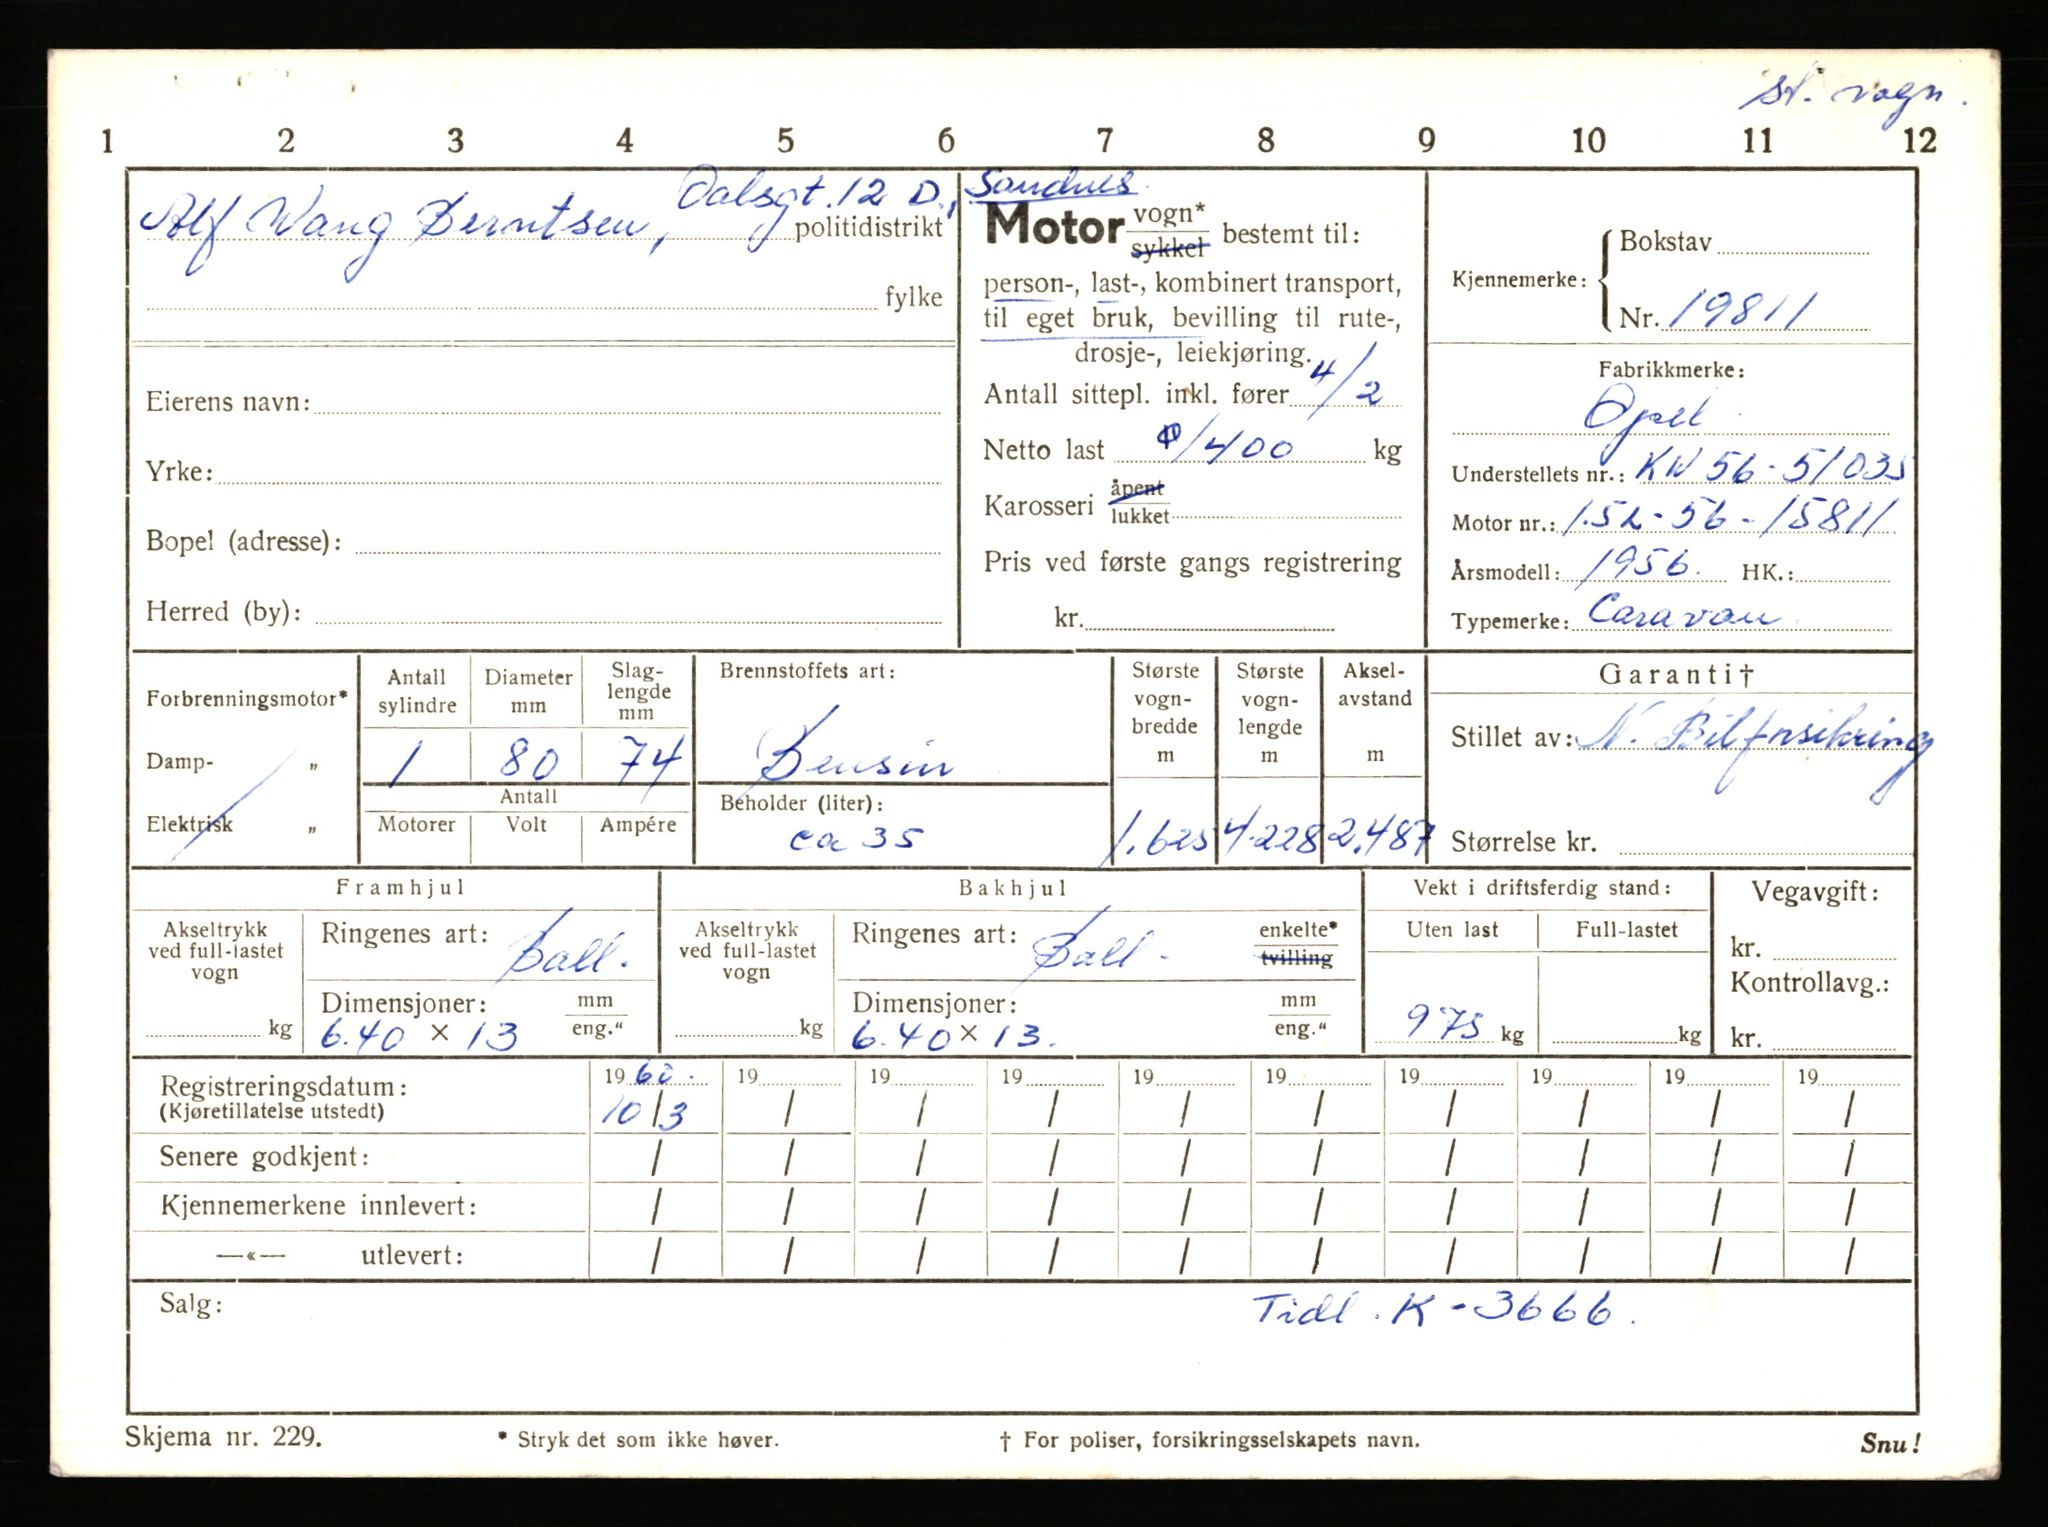 st. vogn.
1 2 3 4 5 6 7 8 9 10 11 12
Alf Wang Berntsen, Dalsgt. 12 D., Sandnes.
politidistrikt
fylke
Eierens navn:
Yrke:
Bopel (adresse):
Herred (by):
Motor vogn* sykkel bestemt til:
person-, last-, kombinert transport,
til eget bruk, bevilling til rute-,
drosje-, leiekjøring.
Antall sittepl. inkl. fører 4/2
Netto last 0/400 kg
Karosseri åpent lukket
Pris ved første gangs registrering
kr.
Kjennemerke: Bokstav
Nr. 19811
Fabrikkmerke:
Opel
Understellets nr.: KW 56-51035
Motor nr.: 1.5L-56-15811
Årsmodell: 1956. HK.:
Typemerke: Caravan
Forbrenningsmotor*
Damp- „
Elektrisk „
Antall sylindre Diameter mm Slag-lengde mm
1 80 74
Antall
Motorer Volt Ampére
Brennstoffets art:
Bensin
Beholder (liter):
ca 35
Største vogn-bredde m
1.625
Største vogn-lengde m
4.228
Aksel-avstand m
2.487
Garanti†
Stillet av: N. Bilforsikring
Størrelse kr.
Framhjul
Akseltrykk ved full-lastet vogn
kg
Ringenes art: Ball.
Dimensjoner: mm eng."
6.40 × 13
Bakhjul
Akseltrykk ved full-lastet vogn
kg
Ringenes art: Ball. enkelte* tvilling
Dimensjoner: mm eng."
6.40 × 13.
Vekt i driftsferdig stand:
Uten last Full-lastet
975 kg kg
Vegavgift:
kr.
Kontrollavg.:
kr.
Registreringsdatum: 1960. 19 19 19 19 19 19 19 19 19
(Kjøretillatelse utstedt) 10/3 / / / / / / / / /
Senere godkjent: / / / / / / / / / /
Kjennemerkene innlevert: / / / / / / / / / /
—«— utlevert: / / / / / / / / / /
Salg: Tidl. K-3666.
Skjema nr. 229. * Stryk det som ikke høver. † For poliser, forsikringsselskapets navn. Snu!